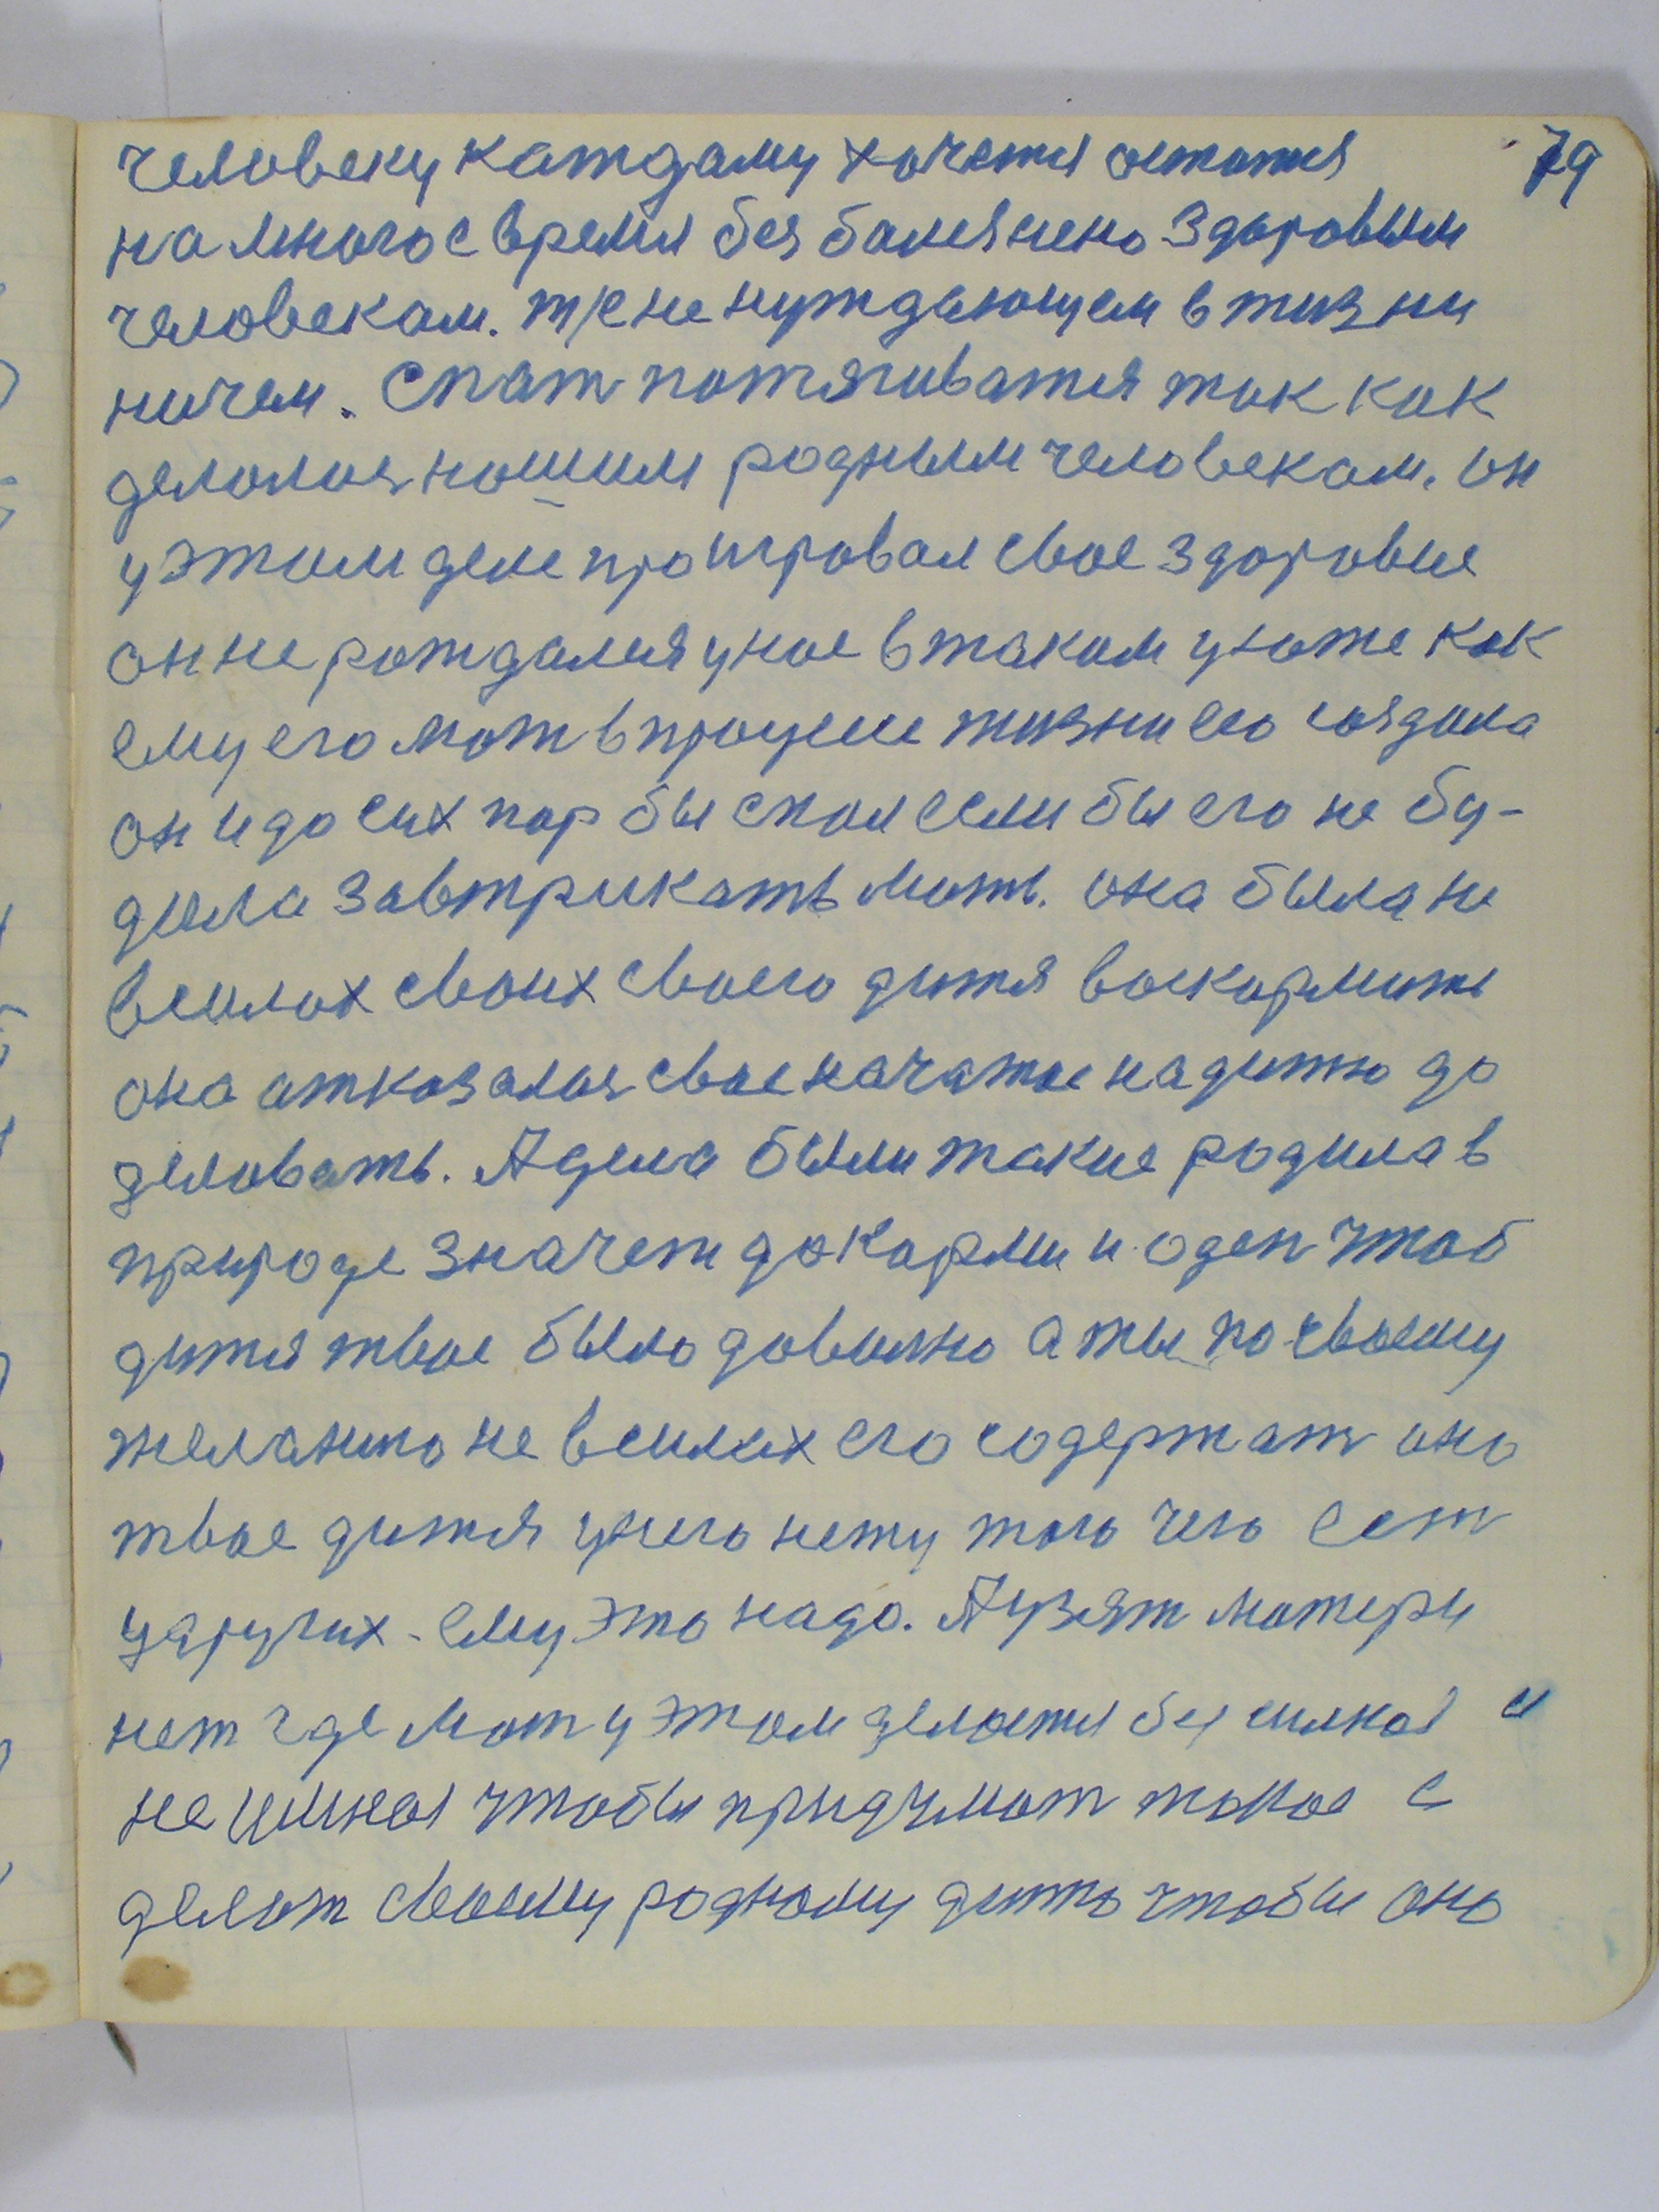 79
человеку каждаму хочется остатся
на многое время безболезнено здоровым
человекам. т/е не нуждающем в жизни
ничем. Спат потягиватся так как
делолося нашим родным человекам. он
у этом деле проигровал свое здоровие
он не рождался у нас в таком уюте как
ему его мат в процесе жизни его создала
он и до сих пор бы спал если бы его не бу-
дила завтрикать мать. она была не
в силах своих своего дитя воскормить
она атказалася свае начатое на дитю до
деловать. А дела были такие родила в
природе значет докорми и оден чтоб
дитя твое было довольно а ты по своему
желанию не в силах его содержат оно
твое дитя у него нету того чего ест
у других. ему это надо. А узят матери
нет где мат у этом делается бессилной и
не цинной чтобы придумат токое с
делат своему родному дитю чтобы оно